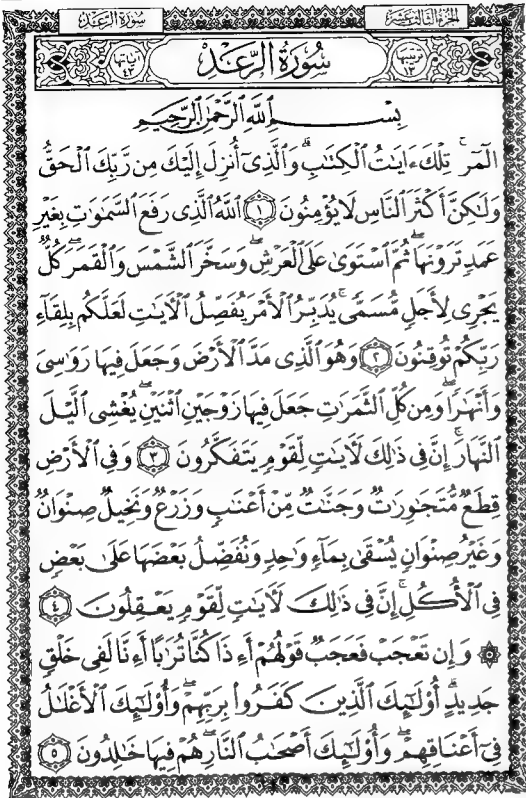 الجزء الثالث عشر
سورة الرعد
ترتيبها ١٣
سُورَةُ الرَّعْدِ
آياتها ٤٣
بِسْمِ اللَّهِ الرَّحْمَٰنِ الرَّحِيمِ
الٓمٓر ۚ تِلْكَ ءَايَٰتُ الْكِتَٰبِ ۗ وَالَّذِىٓ أُنزِلَ إِلَيْكَ مِن رَّبِّكَ الْحَقُّ
وَلَٰكِنَّ أَكْثَرَ النَّاسِ لَا يُؤْمِنُونَ ١ اللَّهُ الَّذِى رَفَعَ السَّمَٰوَٰتِ بِغَيْرِ
عَمَدٍ تَرَوْنَهَا ۖ ثُمَّ اسْتَوَىٰ عَلَى الْعَرْشِ ۖ وَسَخَّرَ الشَّمْسَ وَالْقَمَرَ ۖ كُلٌّ
يَجْرِى لِأَجَلٍ مُّسَمًّى ۚ يُدَبِّرُ الْأَمْرَ يُفَصِّلُ الْآيَٰتِ لَعَلَّكُم بِلِقَآءِ
رَبِّكُمْ تُوقِنُونَ ٢ وَهُوَ الَّذِى مَدَّ الْأَرْضَ وَجَعَلَ فِيهَا رَوَٰسِىَ
وَأَنْهَٰرًا ۖ وَمِن كُلِّ الثَّمَرَٰتِ جَعَلَ فِيهَا زَوْجَيْنِ اثْنَيْنِ ۖ يُغْشِى الَّيْلَ
النَّهَارَ ۚ إِنَّ فِى ذَٰلِكَ لَآيَٰتٍ لِّقَوْمٍ يَتَفَكَّرُونَ ٣ وَفِى الْأَرْضِ
قِطَعٌ مُّتَجَٰوِرَٰتٌ وَجَنَّٰتٌ مِّنْ أَعْنَٰبٍ وَزَرْعٌ وَنَخِيلٌ صِنْوَانٌ
وَغَيْرُ صِنْوَانٍ يُسْقَىٰ بِمَآءٍ وَٰحِدٍ وَنُفَضِّلُ بَعْضَهَا عَلَىٰ بَعْضٍ
فِى الْأُكُلِ ۚ إِنَّ فِى ذَٰلِكَ لَآيَٰتٍ لِّقَوْمٍ يَعْقِلُونَ ٤
۞ وَإِن تَعْجَبْ فَعَجَبٌ قَوْلُهُمْ أَءِذَا كُنَّا تُرَٰبًا أَءِنَّا لَفِى خَلْقٍ
جَدِيدٍ ۗ أُو۟لَٰٓئِكَ الَّذِينَ كَفَرُوا۟ بِرَبِّهِمْ ۖ وَأُو۟لَٰٓئِكَ الْأَغْلَٰلُ
فِىٓ أَعْنَاقِهِمْ ۖ وَأُو۟لَٰٓئِكَ أَصْحَٰبُ النَّارِ ۖ هُمْ فِيهَا خَٰلِدُونَ ٥